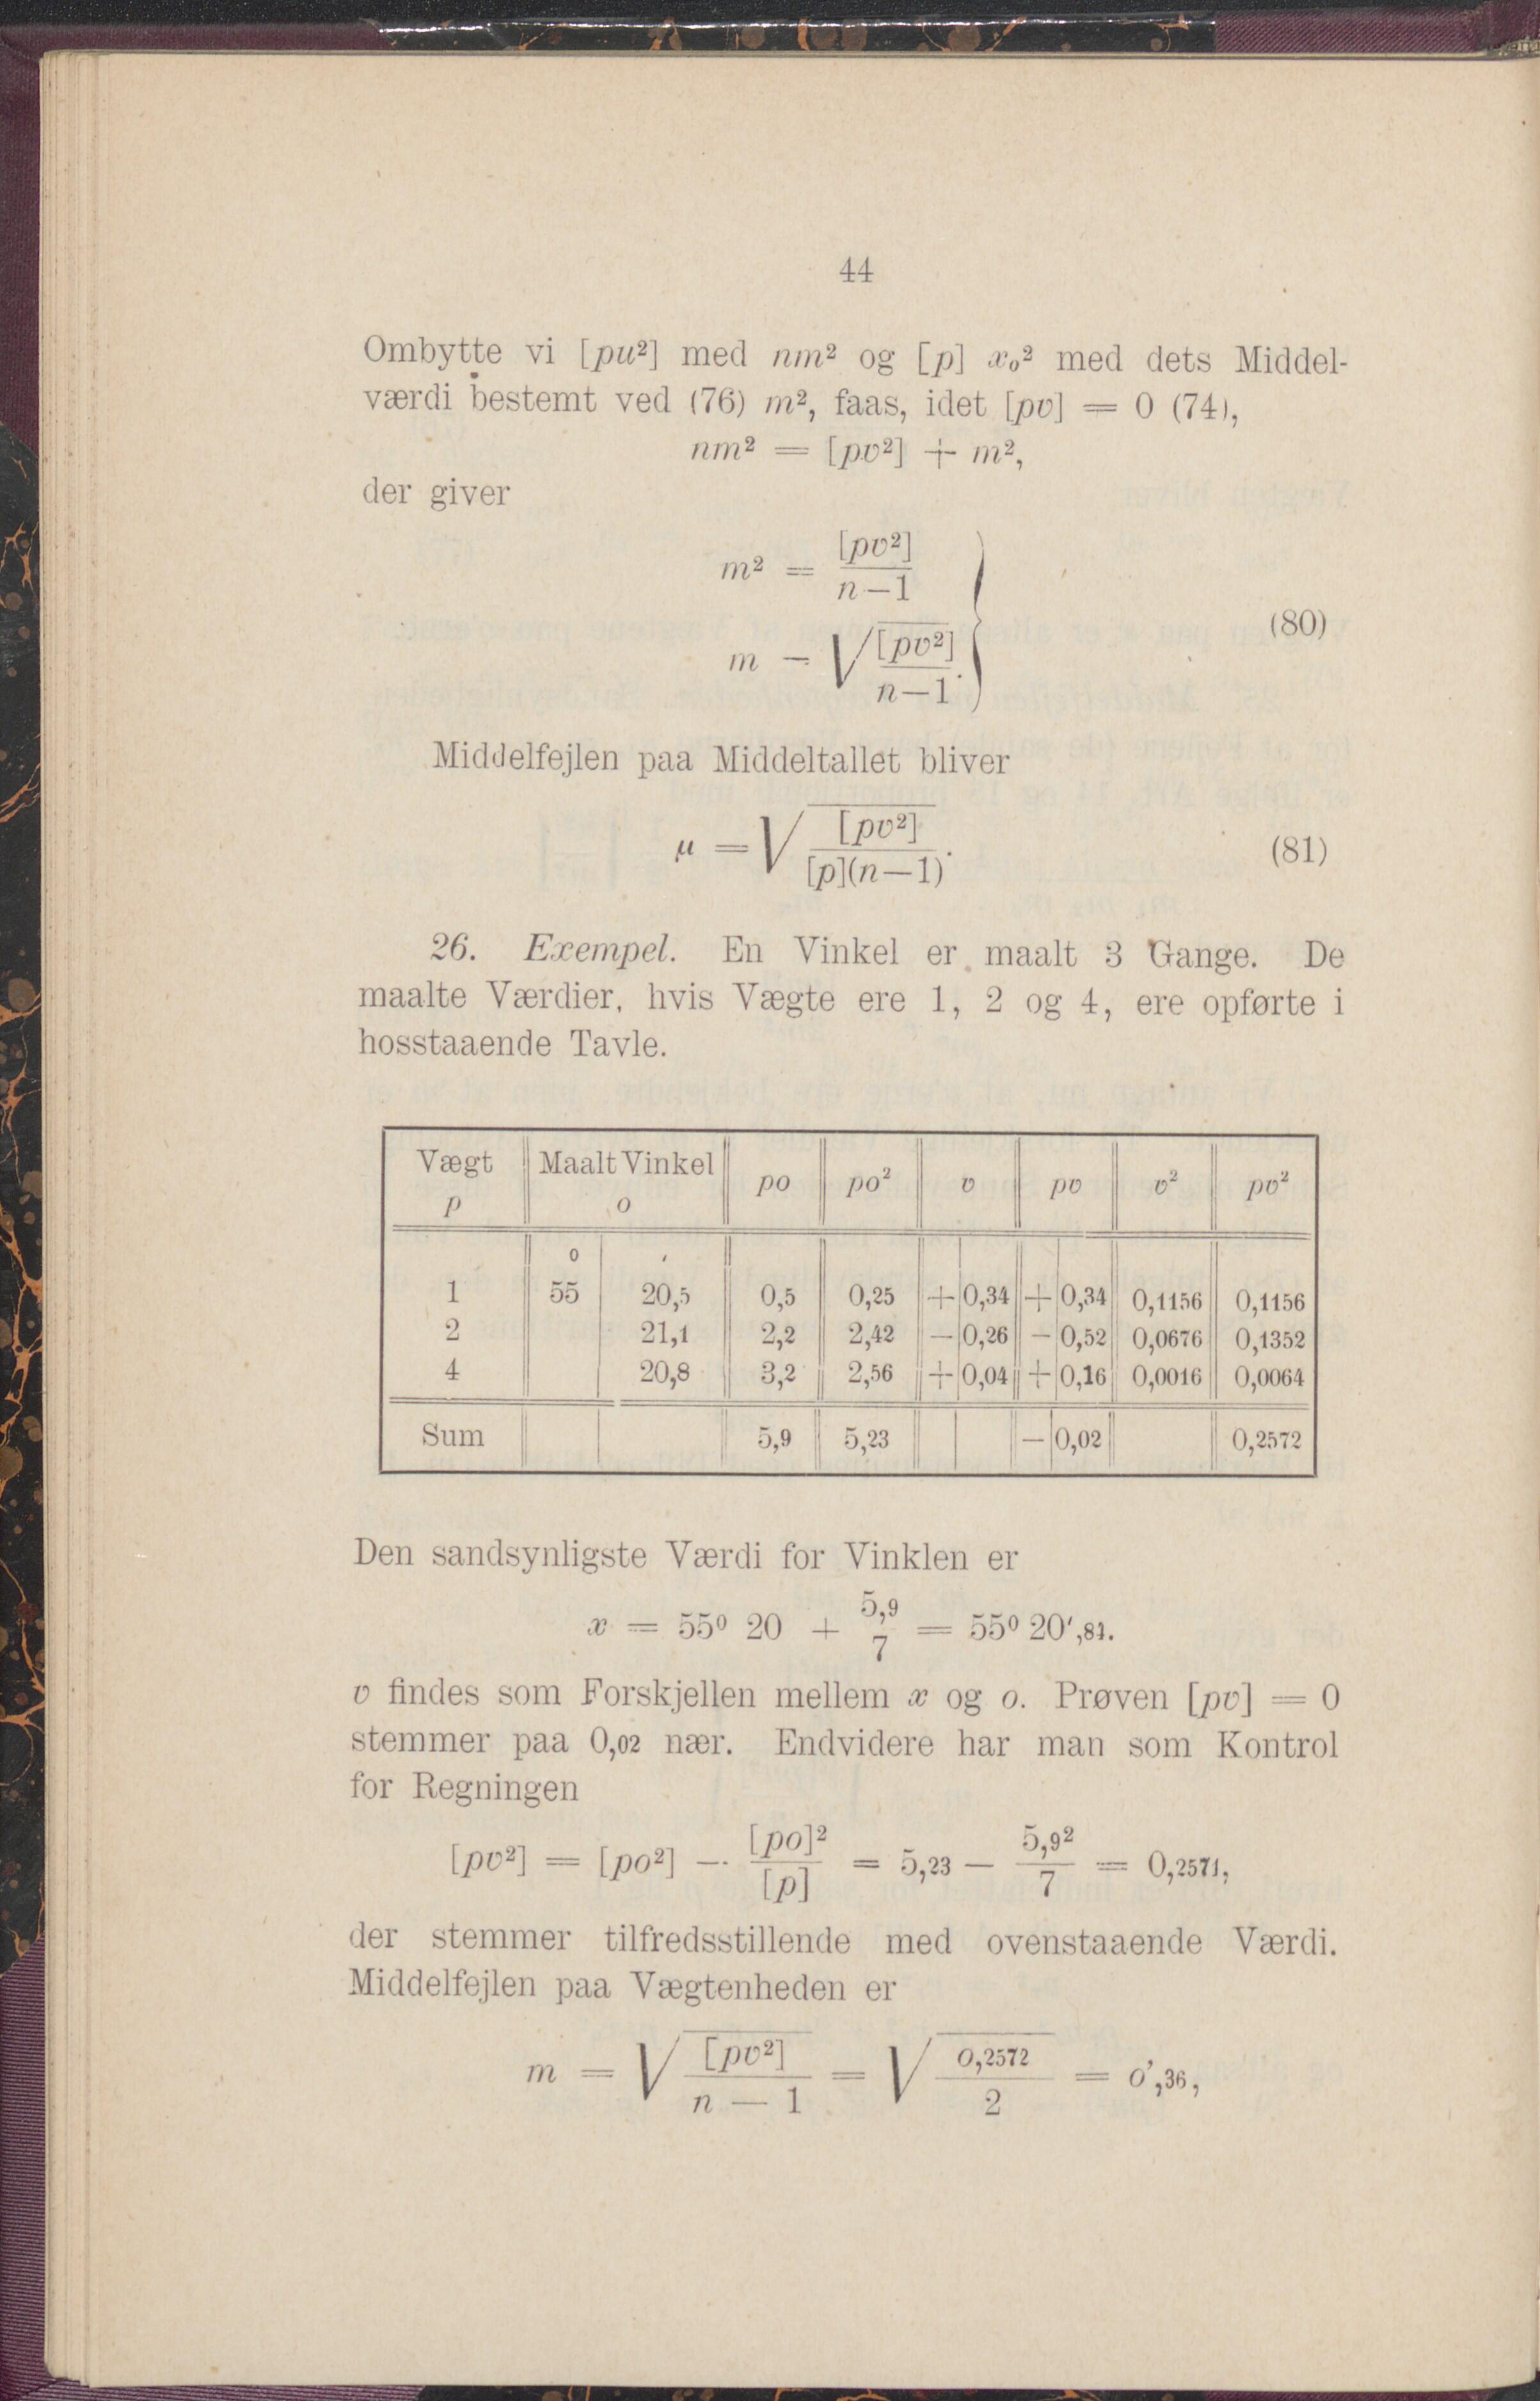 44
Ombytte vi [pu²] med nm² og [p] x₀² med dets Middel-
værdi bestemt ved (76) m², faas, idet [pv] = 0 (74),
nm² = [pv²] + m²,
der giver
m² = [pv²] / n—1
m = √([pv²] / n—1). (80)
Middelfejlen paa Middeltallet bliver
μ = √([pv²] / [p](n—1)). (81)
26. Exempel. En Vinkel er maalt 3 Gange. De
maalte Værdier, hvis Vægte ere 1, 2 og 4, ere opførte i
hosstaaende Tavle.
Vægt p | Maalt Vinkel o | po | po² | v | pv | v² | pv²
o ′
1 | 55 | 20,5 | 0,5 | 0,25 | + 0,34 | + 0,34 | 0,1156 | 0,1156
2 | | 21,1 | 2,2 | 2,42 | — 0,26 | — 0,52 | 0,0676 | 0,1352
4 | | 20,8 | 3,2 | 2,56 | + 0,04 | + 0,16 | 0,0016 | 0,0064
Sum | | | 5,9 | 5,23 | | — 0,02 | | 0,2572
Den sandsynligste Værdi for Vinklen er
x = 55⁰ 20 + 5,9 / 7 = 55⁰ 20′,84.
v findes som Forskjellen mellem x og o. Prøven [pv] = 0
stemmer paa 0,02 nær. Endvidere har man som Kontrol
for Regningen
[pv²] = [po²] — [po]² / [p] = 5,23 — 5,9² / 7 = 0,2571,
der stemmer tilfredsstillende med ovenstaaende Værdi.
Middelfejlen paa Vægtenheden er
m = √([pv²] / n — 1) = √(0,2572 / 2) = 0′,36,